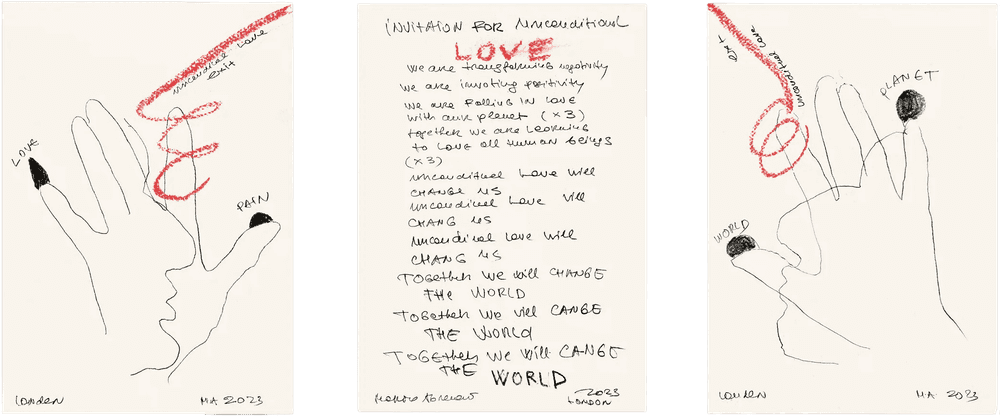 LOVE
unconditional Love
exit
PAIN
LONDON
MA 2023
INVITAION FOR UNCONDITIONAL
LOVE
We are transforming negativity
we are invoting positivity
we are falling in love
with our planet (x3)
together we are learning
to Love all human beings
(x3)
unconditional Love will
CHANGE US
unconditional Love will
CHANG US
unconditional Love will
CHANG US
TOGETHER WE will CHANGE
THE WORLD
TOGETHER WE will CANGE
THE WORLD
TOGETHER WE will CANGE
THE WORLD
2023
LONDON
exit
unconditional Love
PLANET
WORLD
LONDON
M.A. 2023